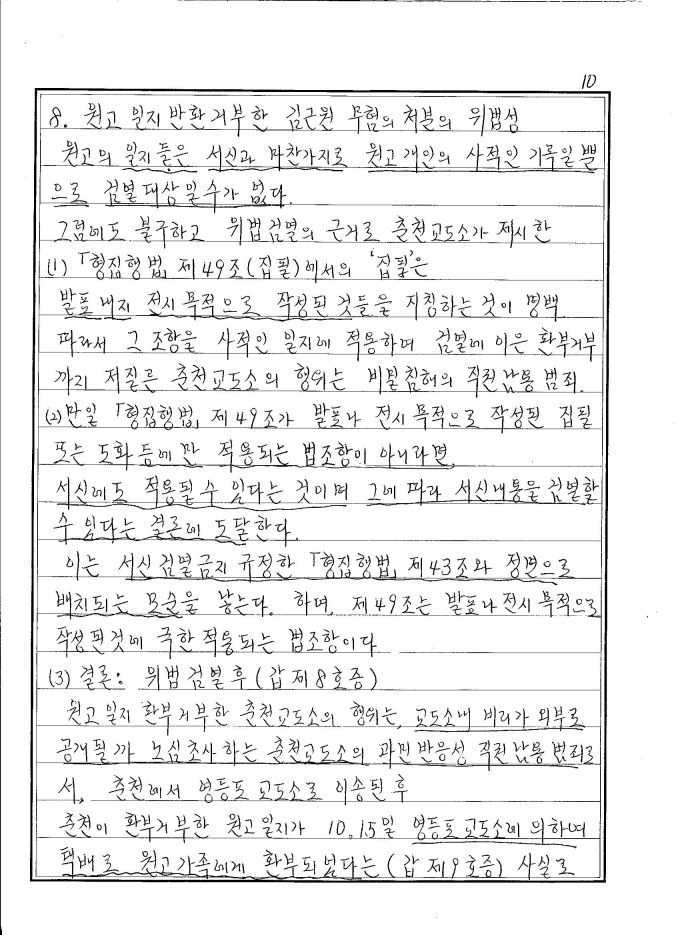 10
8. 원고 일지 반환거부한 김근원 무혐의 처분의 위법성
원고의 일지들은 서신과 마찬가지로 원고 개인의 사적인 기록일 뿐
으로 검열대상일 수가 없다.
그럼에도 불구하고 위법검열의 근거로 춘천교도소가 제시한
(1) 「형집행법」 제49조(집필)에서의 '집필'은
발표내지 전시 목적으로 작성된 것들을 지칭하는 것이 명백.
따라서 그 조항을 사적인 일지에 적용하며 검열에 이은 환부거부
까지 저질른 춘천교도소의 행위는 비밀침해의 직권남용 범죄.
(2) 만일 「형집행법」 제49조가 발표나 전시 목적으로 작성된 집필
또는 도화 등에만 적용되는 법조항이 아니라면,
서신에도 적용될 수 있다는 것이며 그에 따라 서신내통을 검열할
수 있다는 결론에 도달한다.
이는 서신검열금지 규정한 「형집행법」 제43조와 정면으로
배치되는 모순을 낳는다. 하며, 제49조는 발표나 전시 목적으로
작성된 것에 국한 적용되는 법조항이다
(3) 결론: 위법검열 후 (갑 제8호증)
원고 일지 환부거부한 춘천교도소의 행위는, 교도소내 비리가 외부로
공개될까 노심초사하는 춘천교도소의 과민반응성 직권남용 범죄로
서, 춘천에서 영등포 교도소로 이송된 후
춘천이 환부거부한 원고일지가 10.15일 영등포교도소에 의하여
택배로 원고가족에게 환부되었다는 (갑 제9호증) 사실로